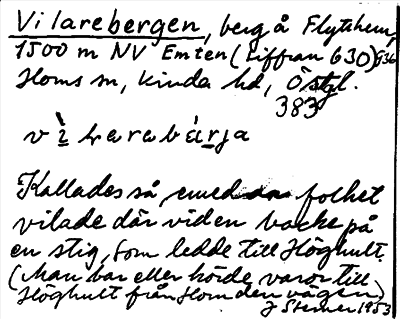 Vilarebergen, berg å Flytshem,
1500 m NV Emten (Siffran 630) 936
Homs sn, Kinda hd, Östgl.
383
vìlarabärja
Kallades så, emedan folket
vilade där vid en backe på
en stig, som ledde till Höghult.
(Man bar eller körde varor till
Höghult från Horn den vägen)
J Sterner 1953